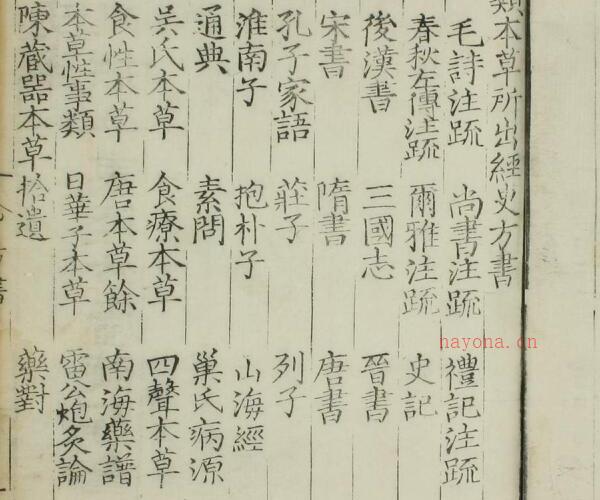 類本草所出經史方書
毛詩注疏 尚書注疏 禮記注疏
春秋左傳注疏 爾雅注疏 史記
後漢書 三國志 晉書
宋書 隋書 唐書
孔子家語 莊子 列子
淮南子 抱朴子 山海經
通典 素問 巢氏病源
吳氏本草 食療本草 四聲本草
食性本草 唐本草餘 南海藥譜
本草性事類 日華子本草 雷公炮炙論
陳藏器本草拾遺 藥對
nayona.cn